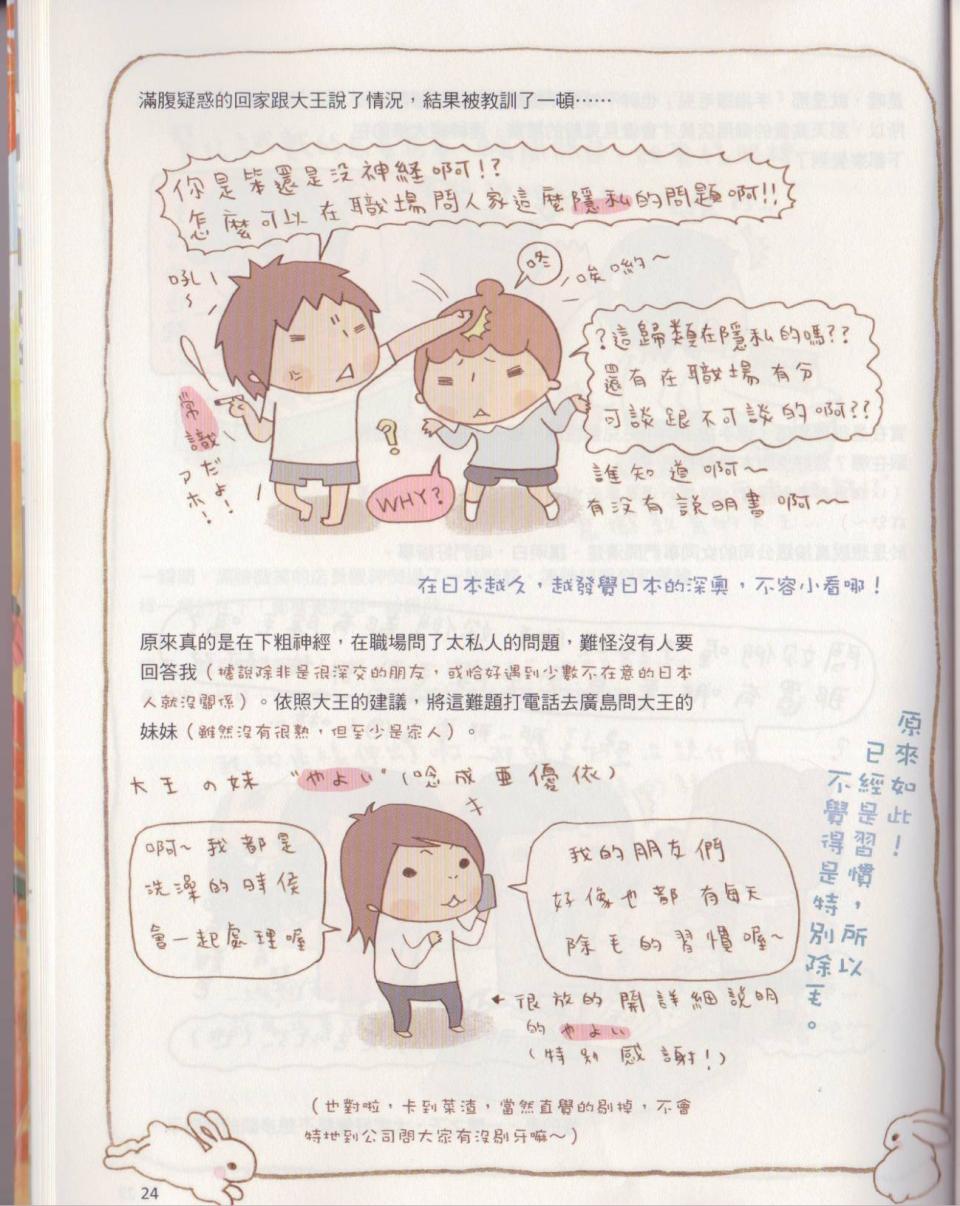 滿腹疑惑的回家跟大王說了情況，結果被教訓了一頓……
你是笨還是沒神經啊!?
怎麼可以在職場問人家這麼隱私的問題啊!!
吼~
咚
唉喲~
常識だよ!
アホ!
?
WHY?
?這歸類在隱私的嗎??
還有在職場有分
可談跟不可談的啊??
誰知道啊~
有沒有說明書啊~~
在日本越久，越發覺日本的深奧，不容小看哪！
原來真的是在下粗神經，在職場問了太私人的問題，難怪沒有人要
回答我（據說除非是很深交的朋友，或恰好遇到少數不在意的日本
人就沒關係）。依照大王的建議，將這難題打電話去廣島問大王的
妹妹（雖然沒有很熟，但至少是家人）。
大王の妹 "やよい"（唸成亜優依）
啊~我都是
洗澡的時侯
會一起處理喔
我的朋友們
好像也都有每天
除毛的習慣喔~
很放的開詳細說明
的やよい
（特別感謝!）
原來如此！
已經是習慣，所以
不覺得是特別除毛。
（也對啦，卡到菜渣，當然直覺的剔掉，不會
特地到公司問大家有沒剔牙嘛~）
24